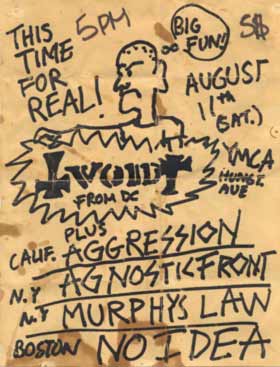 THIS
TIME
FOR
REAL!
5PM
BIG
FUN!
5$
AUGUST
11TH
(SAT.)
YMCA
AVE
VOID
FROM DC
PLUS
CALIF. AGGRESSION
N.Y AGNOSTIC FRONT
N.Y MURPHYS LAW
BOSTON NO IDEA